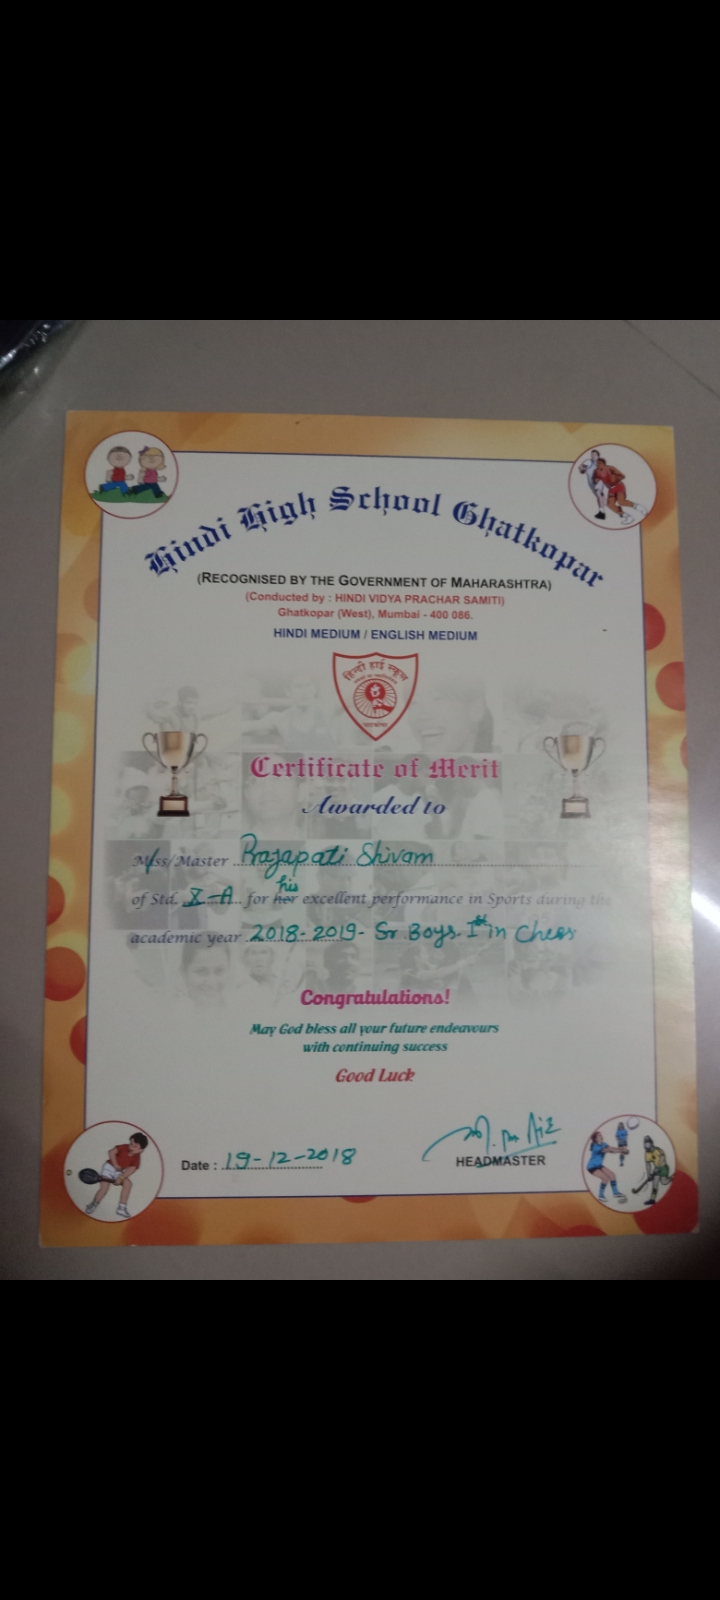 Hindi High School Ghatkopar
(RECOGNISED BY THE GOVERNMENT OF MAHARASHTRA)
(Conducted by : HINDI VIDYA PRACHAR SAMITI)
Ghatkopar (West), Mumbai - 400 086.
HINDI MEDIUM / ENGLISH MEDIUM
हिन्दी हाई स्कूल
घाटकोपर
Certificate of Merit
Awarded to
Miss/Master Prajapati Shivam
his
of Std. X-A for her excellent performance in Sports during the
academic year 2018-2019- Sr Boys. Ist in Chess
Congratulations!
May God bless all your future endeavours
with continuing success
Good Luck
Date : 19-12-2018
HEADMASTER